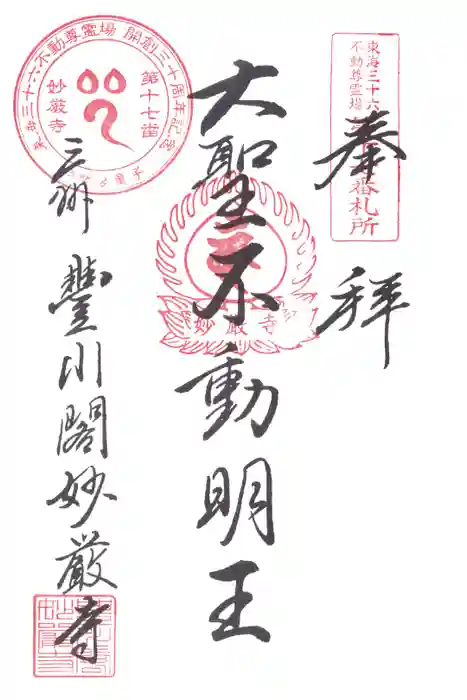 奉拝
東海三十六
不動尊霊場
番札所
大聖不動明王
妙厳寺
三州 豊川閣妙厳寺
東海三十六不動尊霊場 開創三十周年記念
第十七番
妙厳寺